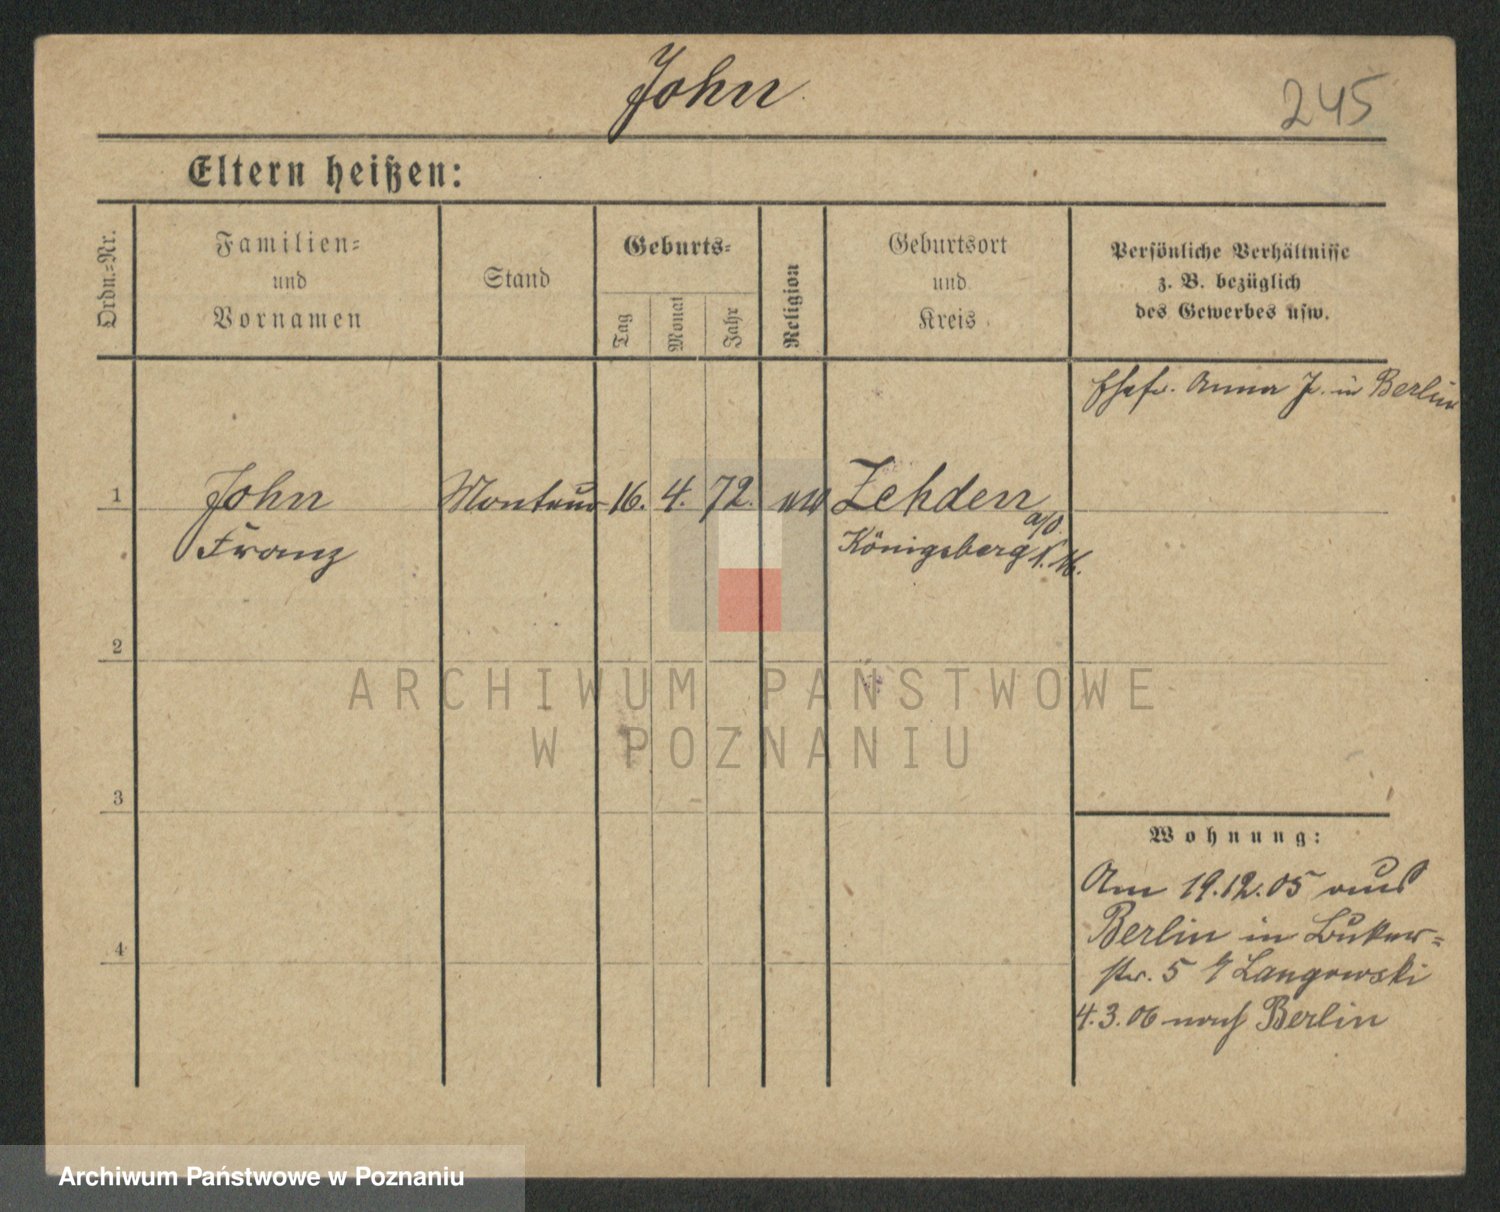 John
245
Eltern heißen:
Ordn.-Nr.
Familien-
und
Vornamen
Stand
Geburts-
Tag
Monat
Jahr
Religion
Geburtsort
und
Kreis
Persönliche Verhältnisse
z. B. bezüglich
des Gewerbes usw.
Ehefr. Anna J. in Berlin
1
John
Franz
Monteur
16.
4.
72.
ev
Zehden
a/O.
Königsberg N. M.
2
3
4
Wohnung:
Am 19.12.05 aus
Berlin in Buker-
str. 5 b/ Langowski
4.3.06 nach Berlin
ARCHIWUM PAŃSTWOWE
W POZNANIU
Archiwum Państwowe w Poznaniu